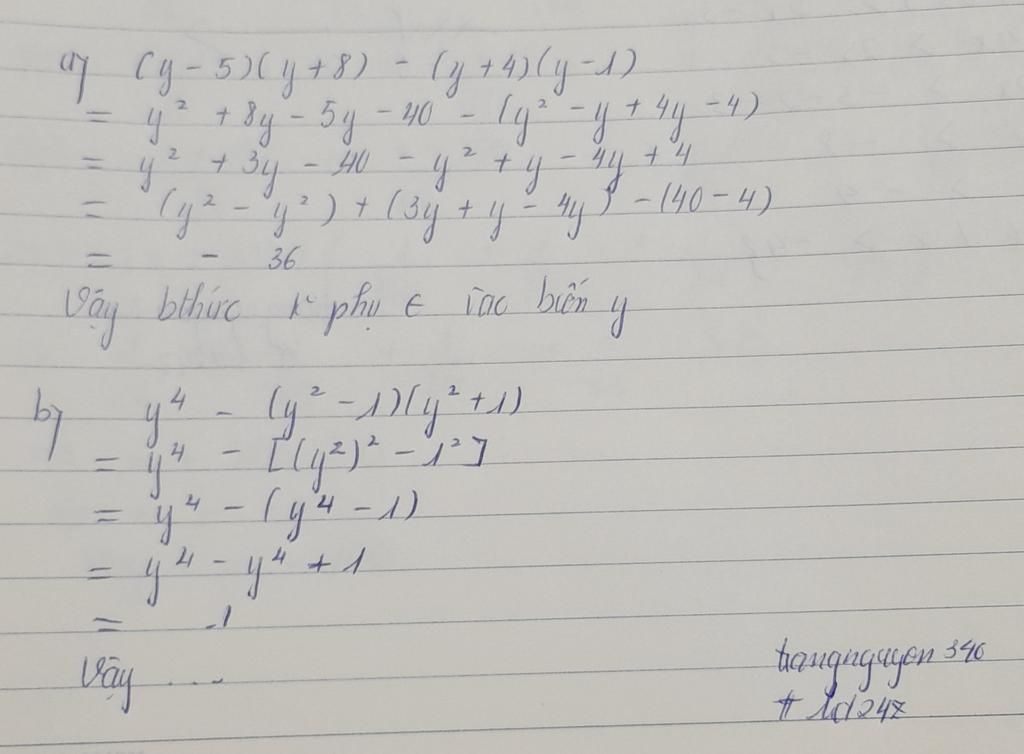 a) (y - 5)(y + 8) - (y + 4)(y - 1)
= y² + 8y - 5y - 40 - (y² - y + 4y - 4)
= y² + 3y - 40 - y² + y - 4y + 4
= (y² - y²) + (3y + y - 4y) - (40 - 4)
= - 36
Vậy bthức k phụ ∈ vào biến y
b) y⁴ - (y² - 1)(y² + 1)
= y⁴ - [(y²)² - 1²]
= y⁴ - (y⁴ - 1)
= y⁴ - y⁴ + 1
= 1
Vậy ....
trangnguyen 346
# 1d247